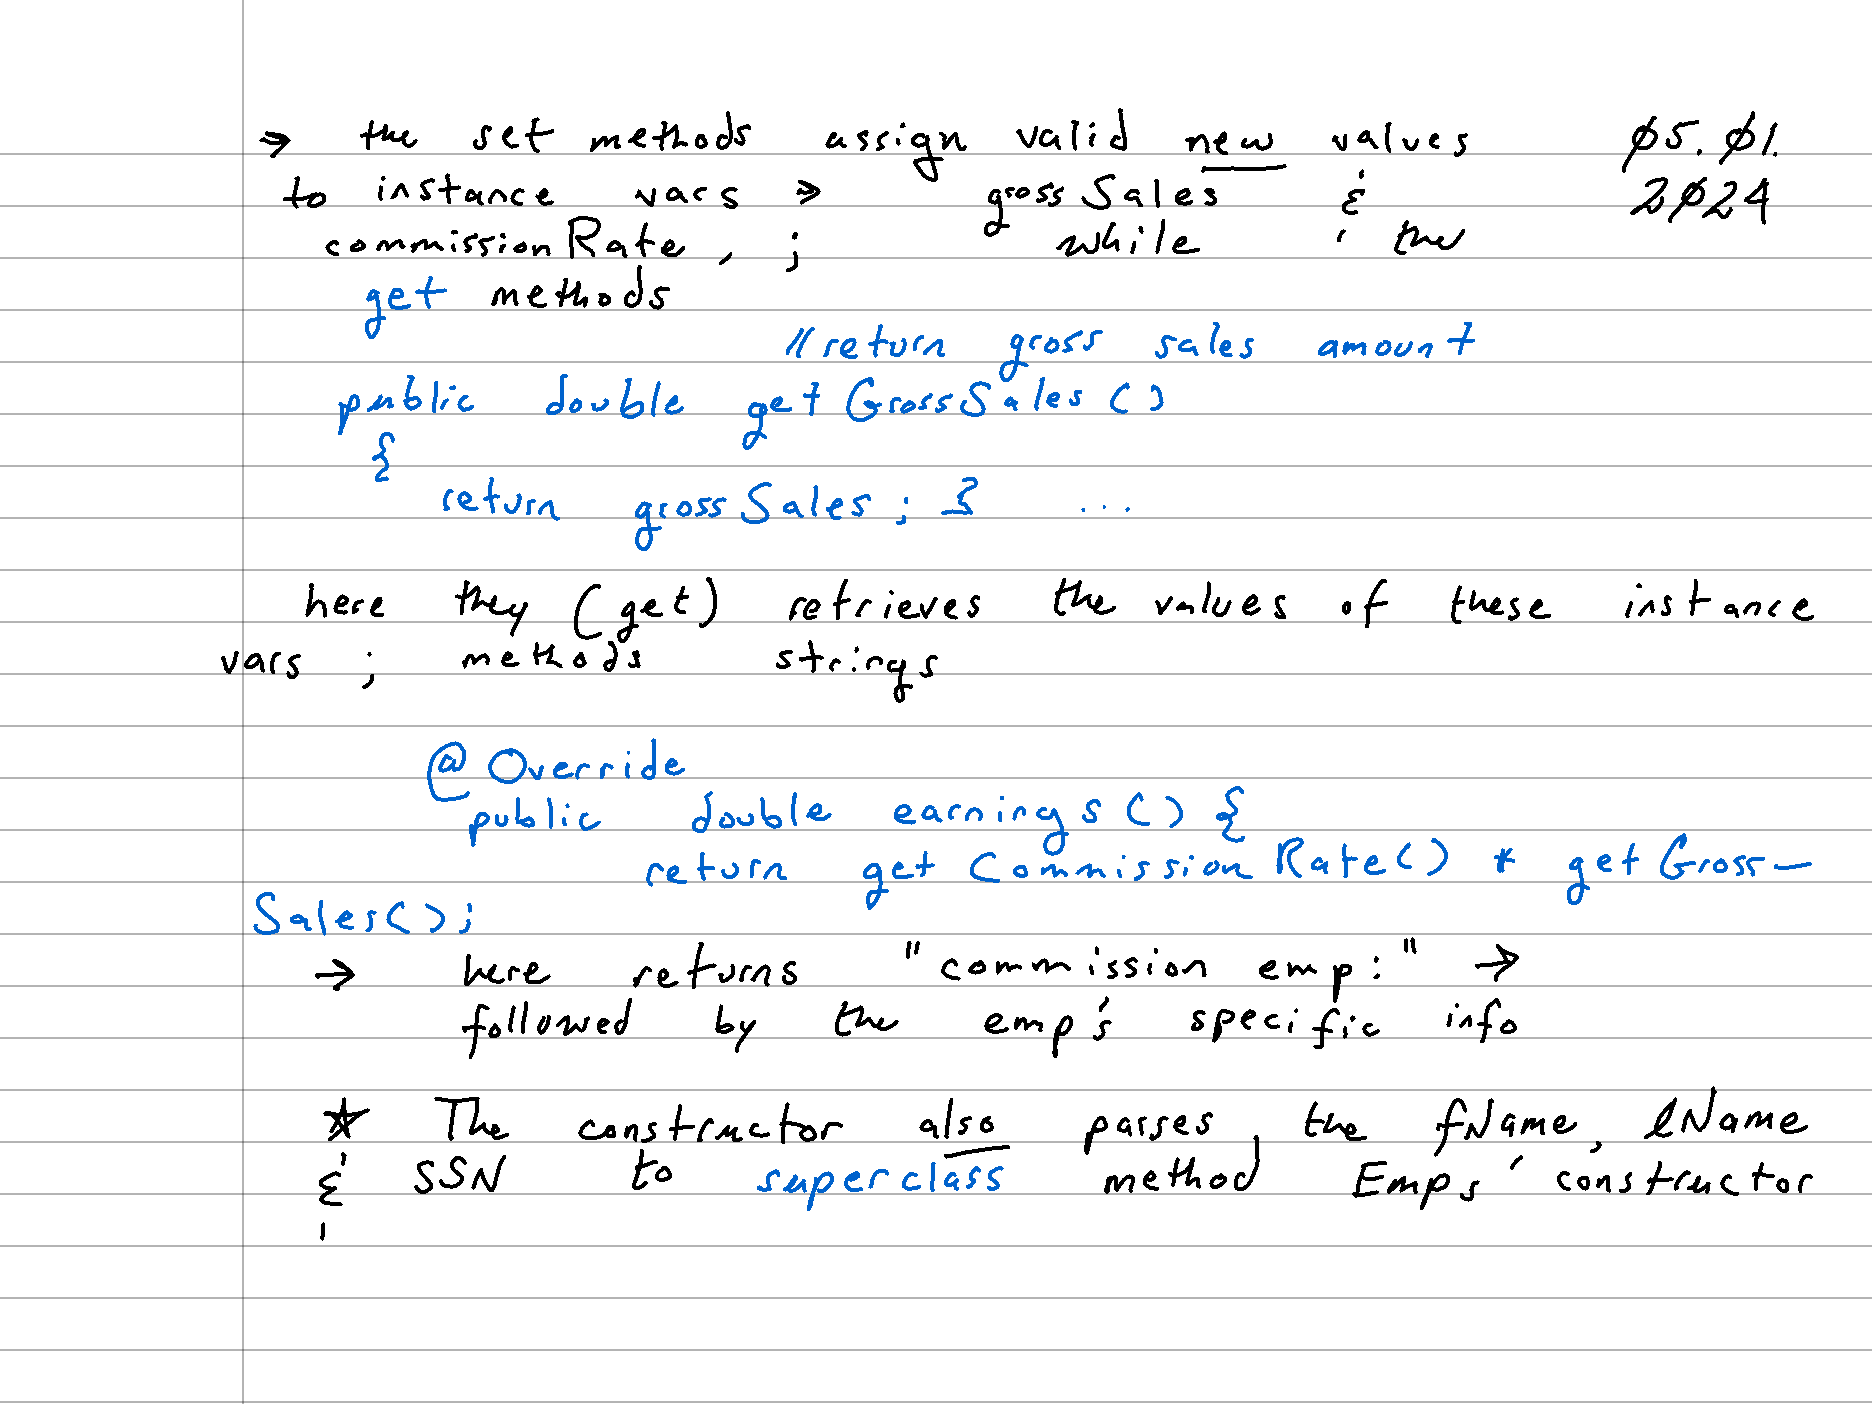 → the set methods assign valid new values 05.01.
to instance vars → grossSales & 2024
commissionRate, ; while the
get methods
//return gross sales amount
public double getGrossSales()
{
return grossSales; } ...
here they (get) retrieves the values of these instance
vars ; methods strings
@Override
public double earnings() {
return getCommissionRate() * getGross-
Sales();
→ here returns "commission emp:" →
followed by the emp's specific info
☆ The constructor also passes, the fName, lName
& SSN to superclass method Emps' constructor